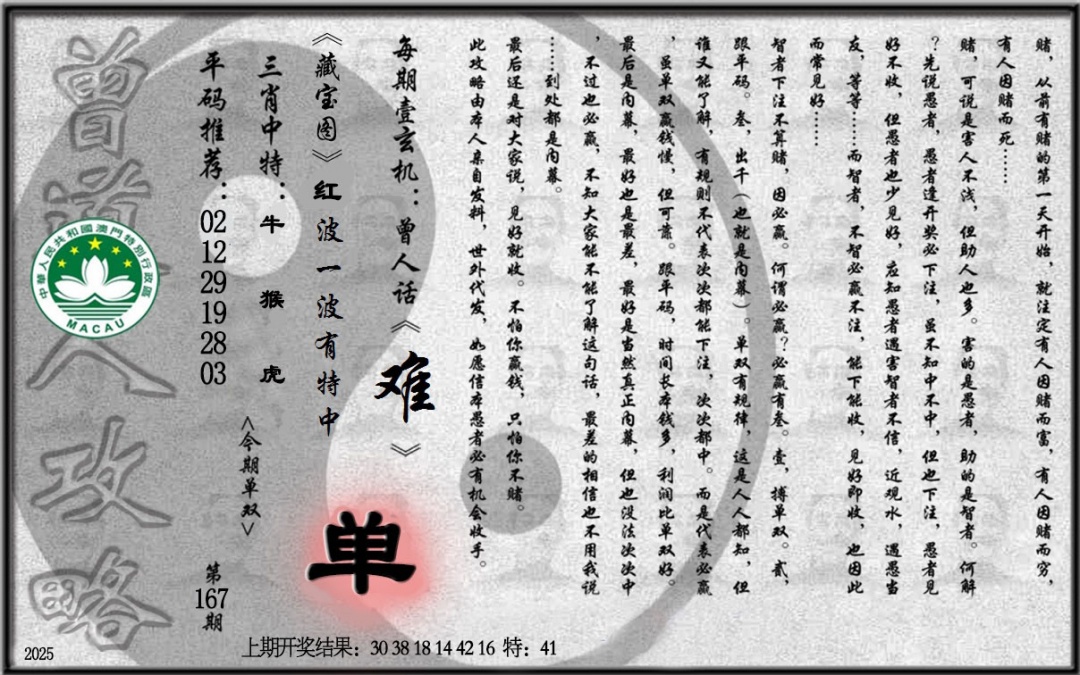 赌，从前有赌的第一天开始，就注定有人因赌而富，有人因赌而穷，
有人因赌而死……
赌，可说是害人不浅，但助人也多。害的是愚者，助的是智者。何解
？先说愚者，愚者逢开奖必下注，虽不知中不中，但也下注，愚者见
好不收，但愚者也少见好，应知愚者遇害智者不信，近观水，遇愚当
友，等等……而智者，不智必赢不注，能下能收，见好即收，也因此
而常见好……
智者下注不算赌，因必赢。何谓必赢？必赢有叁。壹，搏单双。贰，
跟平码。叁，出千（也就是内幕）。单双有规律，这是人人都知，但
谁又能了解，有规则不代表次次都能下注，次次都中。而是代表必赢
，虽单双赢钱慢，但可靠。跟平码，时间长本钱多，利润比单双好。
最后是内幕，最好也是最差，最好是当然真正内幕，但也没法次次中
，不过也必赢，不知大家能不能了解这句话，最差的相信也不用我说
……到处都是内幕。
最后还是对大家说，见好就收。不怕你赢钱，只怕你不赌。
此攻略由本人亲自发料，世外代发，如愿信本愚者必有机会收手。
每期壹玄机：曾人话《难》
《藏宝图》红波一波有特中
三肖中特：牛 猴 虎
平码推荐：02 12 29 19 28 03
<今期单双>
单
第167期
曾道人攻略
中華人民共和國澳門特別行政區
MACAU
上期开奖结果：30 38 18 14 42 16 特：41
2025